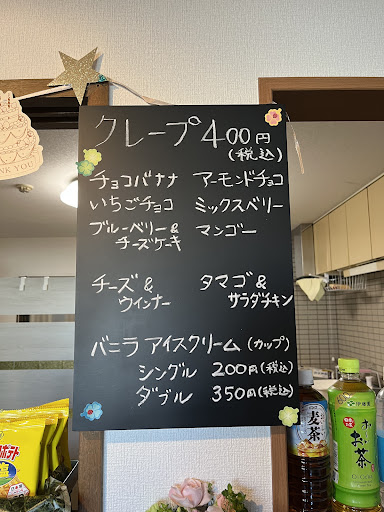 クレープ 400円
(税込)
チョコバナナ アーモンドチョコ
いちごチョコ ミックスベリー
ブルーベリー& マンゴー
チーズケーキ
チーズ& タマゴ&
ウインナー サラダチキン
バニラ アイスクリーム (カップ)
シングル 200円(税込)
ダブル 350円(税込)
THANK YOU
ポテト
麦茶
伊藤園
お〜い
お茶